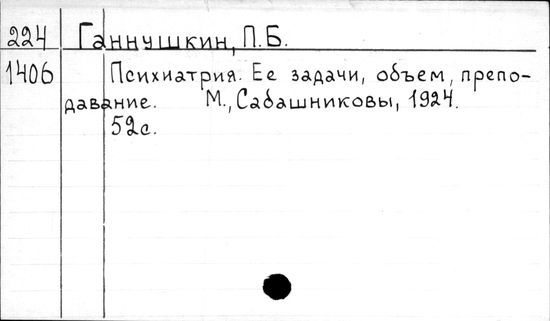 224 Ганнушкин, П.Б.
1406 Психиатрия. Ее задачи, объем, препо-
давание. М., Сабашниковы, 1924.
52с.